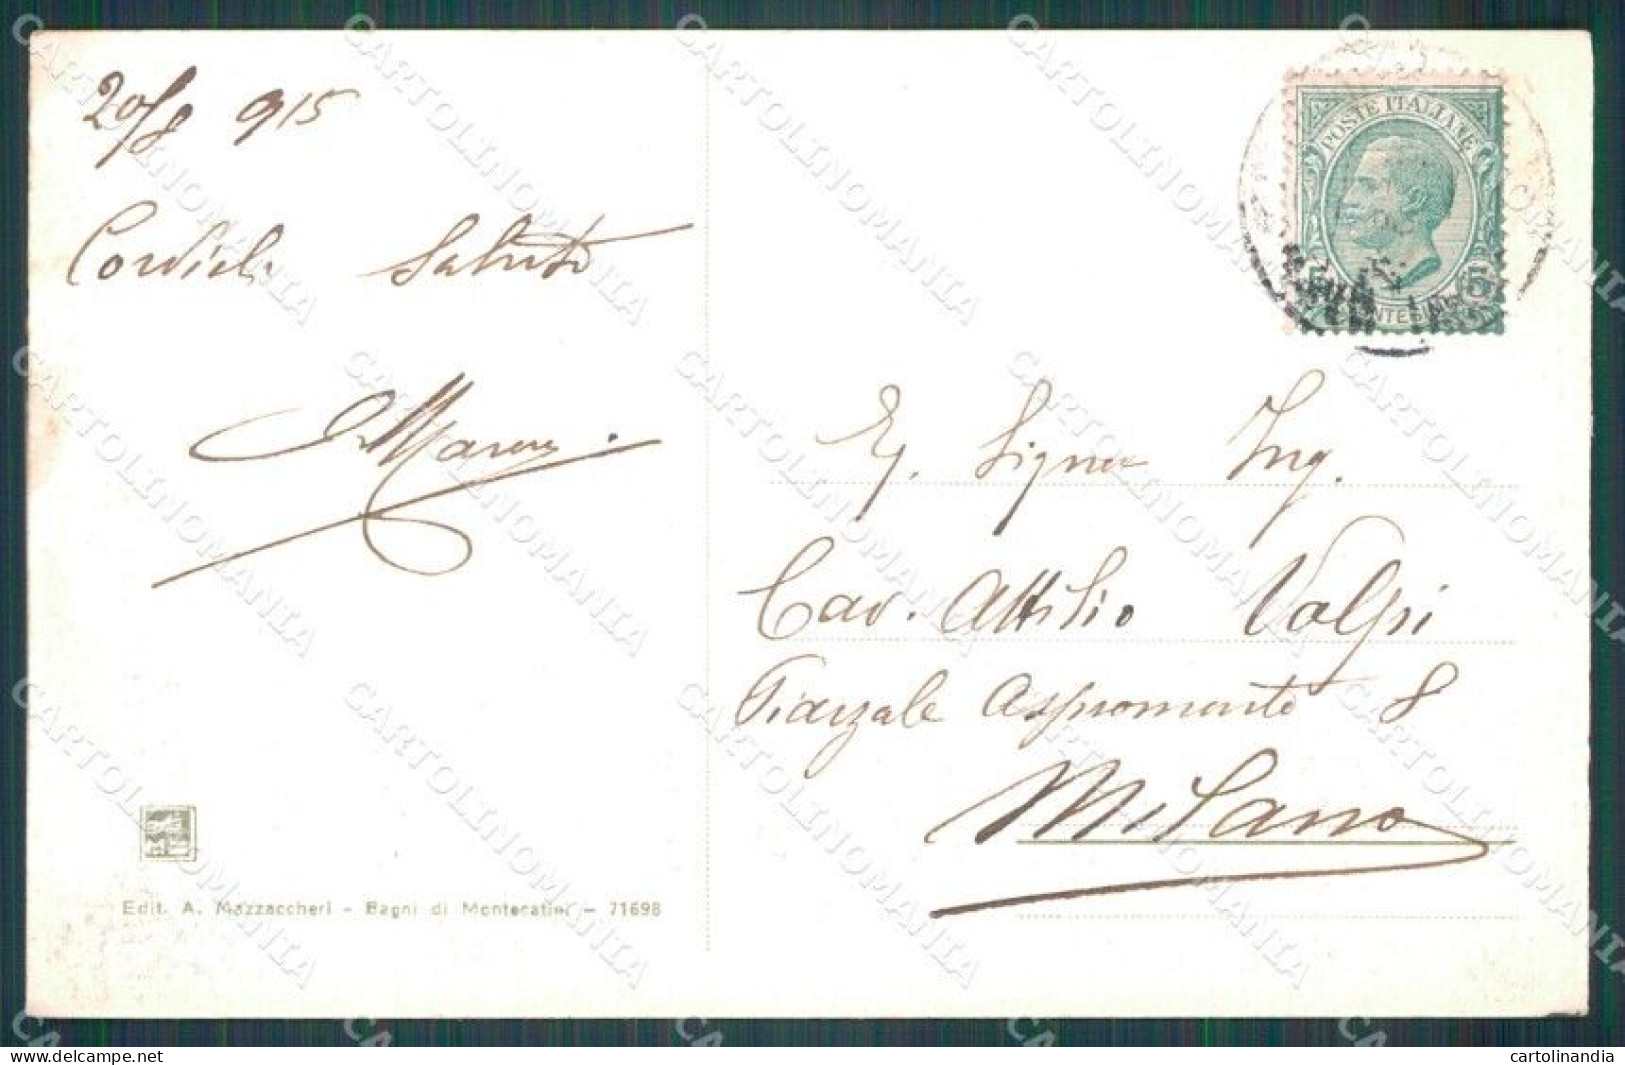 20/8 915
Cordiali Saluti
E. Signor Ing.
Cav. Attilio Volpi
Piazzale Aspromonte 8
Milano
POSTE ITALIANE
5 5
CENTESIMI
Edit. A. Mazzaccheri - Bagni di Montecatini - 71698
CARTOLINOMANIA
delcampe.net
cartolinandia